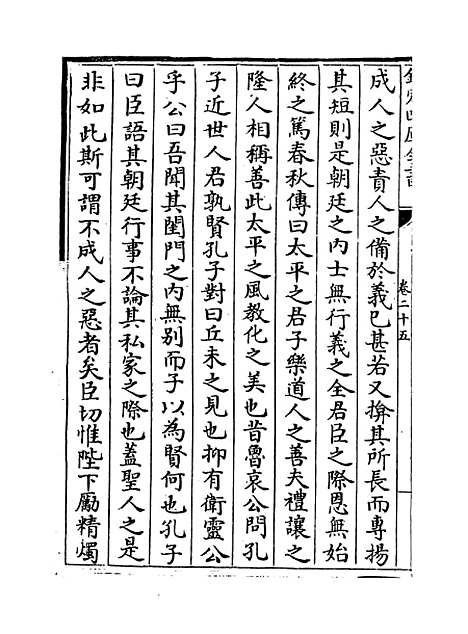 欽定四庫全書
卷二十五
成人之惡責人之備於義已甚若又揜其所長而專揚
其短則是朝廷之内士無行義之全君臣之際恩無始
終之篤春秋傳曰太平之君子樂道人之善夫禮讓之
隆人相稱善此太平之風教化之美也昔魯哀公問孔
子近世人君孰賢孔子對曰丘未之見也抑有衛靈公
乎公曰吾聞其閨門之内無别而子以為賢何也孔子
曰臣語其朝廷行事不論其私家之際也蓋聖人之是
非如此斯可謂不成人之惡者矣臣切惟陛下勵精燭